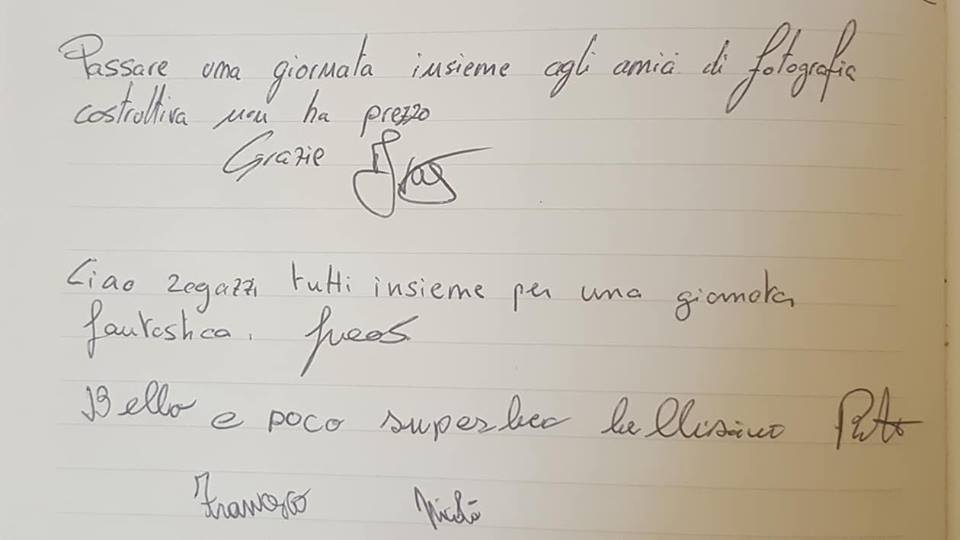 Passare una giornata insieme agli amici di fotografia
costruttiva non ha prezzo
Grazie
Ciao ragazzi tutti insieme per una giornata
fantastica.
Bello e poco superbeo bellissimo
Francesco Nicolò